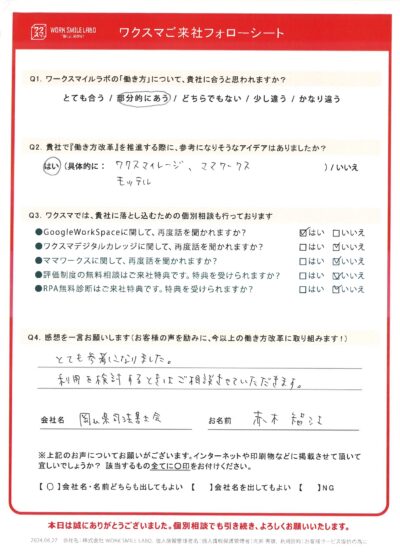 ワクスマ
WORK SMILE LABO
ワクスマご来社フォローシート
Q1. ワークスマイルラボの「働き方」について、貴社に合うと思われますか?
とても合う / 部分的にあう / どちらでもない / 少し違う / かなり違う
Q2. 貴社で『働き方改革』を推進する際に、参考になりそうなアイデアはありましたか?
はい (具体的に: ワクスマイレージ、ママワークス ) / いいえ
モッテル
Q3. ワクスマでは、貴社に落とし込むための個別相談も行っております
●GoogleWorkSpaceに関して、再度話を聞かれますか? ☑はい □いいえ
●ワクスマデジタルカレッジに関して、再度話を聞かれますか? □はい ☑いいえ
●ママワークスに関して、再度話を聞かれますか? □はい ☑いいえ
●評価制度の無料相談はご来社特典です。特典を受けられますか? □はい ☑いいえ
●RPA無料診断はご来社特典です。特典を受けられますか? □はい ☑いいえ
Q4. 感想を一言お願いします(お客様の声を励みに、今以上の働き方改革に取り組みます!)
とても参考になりました。
利用を検討するときはご相談させていただきます。
会社名 岡山県司法書士会 お名前 赤木
※上記のお声についてお願いがございます。インターネットや印刷物などに掲載させて頂いて
宜しいでしょうか? 該当するもの全てに〇印をお付けください。
【 〇 】会社名・名前どちらも出してもよい 【 】会社名を出してもよい 【 】NG
本日は誠にありがとうございました。個別相談でも引き続き、よろしくお願いいたします。